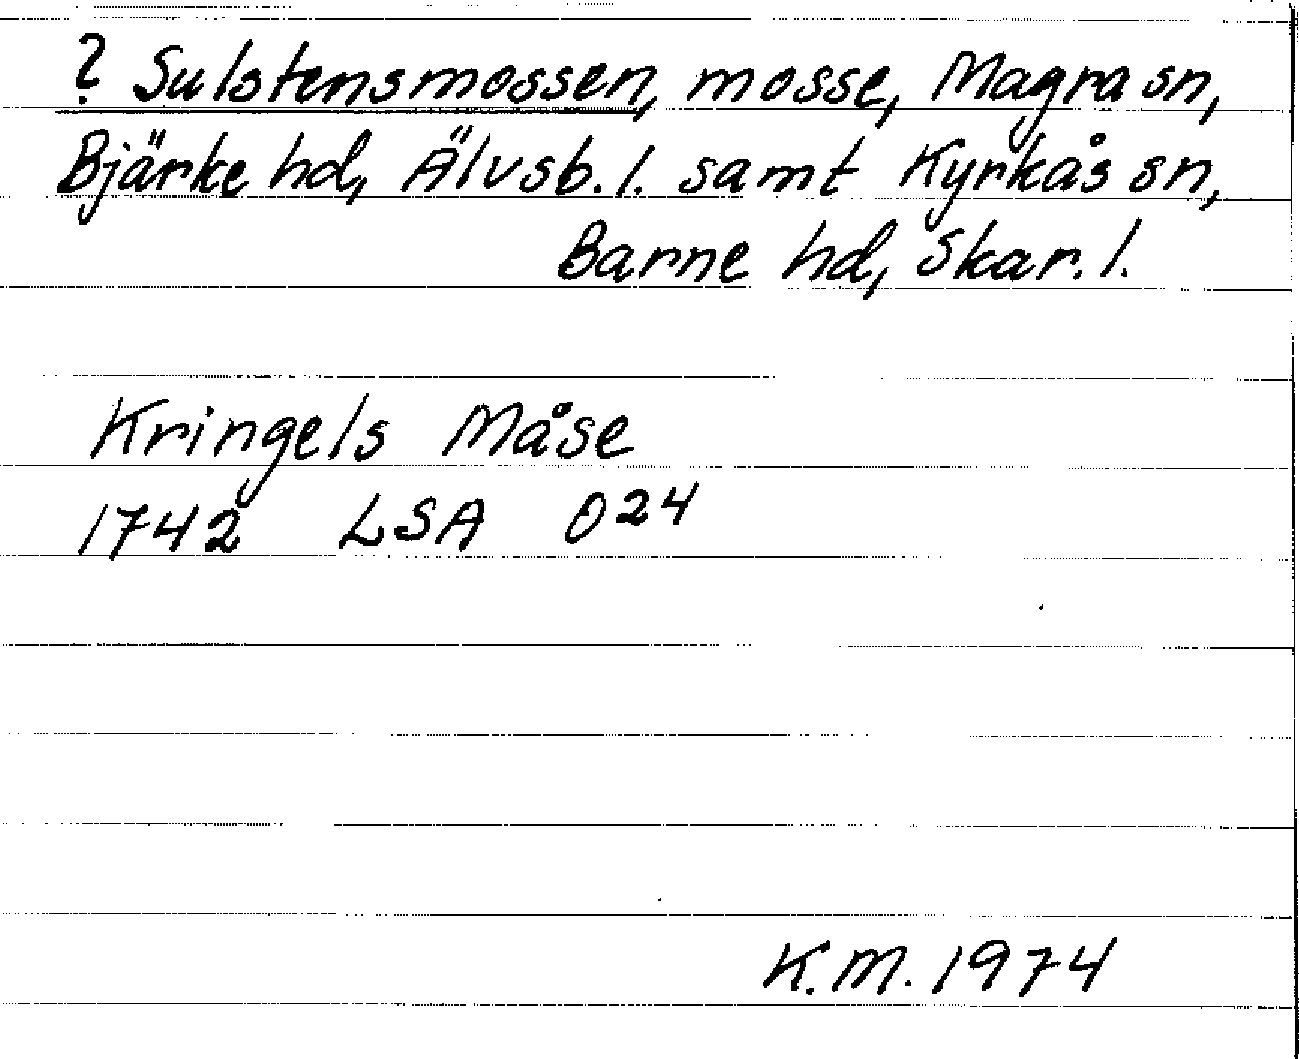 ? Sulstensmossen, mosse, Magra sn,
Bjärke hd, Älvsb. l. samt Kyrkås sn,
Barne hd, Skar. l.
Kringels Måse
1742 LSA O24
K.M. 1974